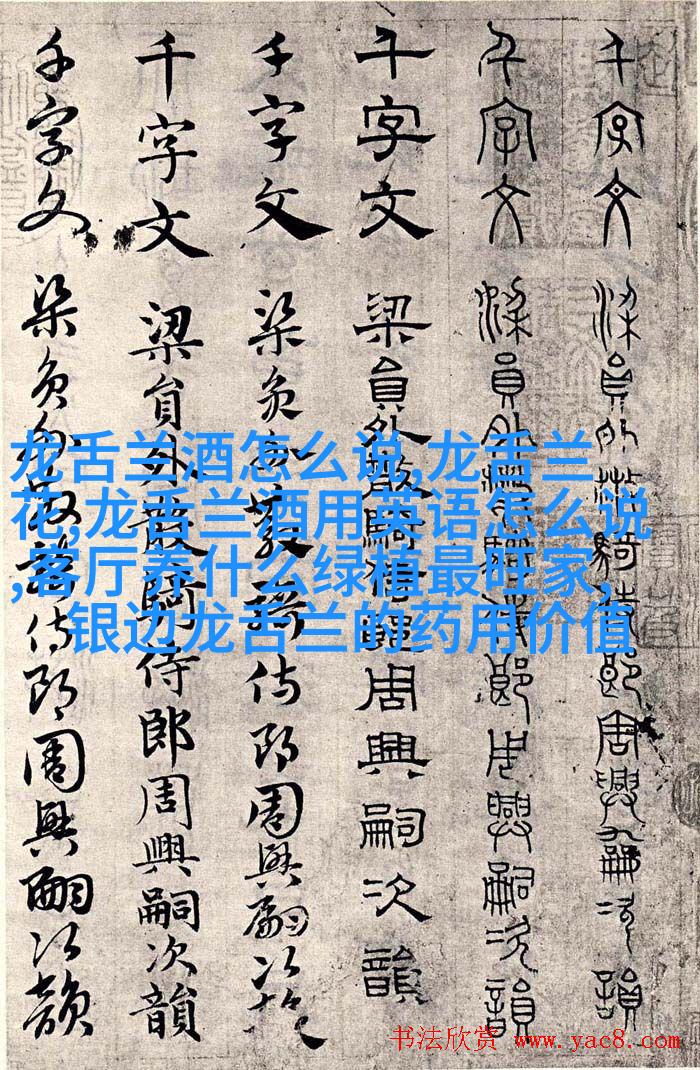 千字文 梁員外散騎侍郎周興嗣次韻
千字文 梁員外散騎侍郎周興嗣次韻
千字文 梁員外散騎侍郎周興嗣次韻
千字文 梁員外散騎侍郎周興嗣次韻
千字文 梁員外散騎侍郎周興嗣次韻
千字文 梁員外散騎侍郎周興嗣次韻
龙舌兰酒怎么说,龙舌兰
花,龙舌兰酒用英语怎么说
,客厅养什么绿植最旺家,
银边龙舌兰的药用价值
书法欣赏 www.yac8.com